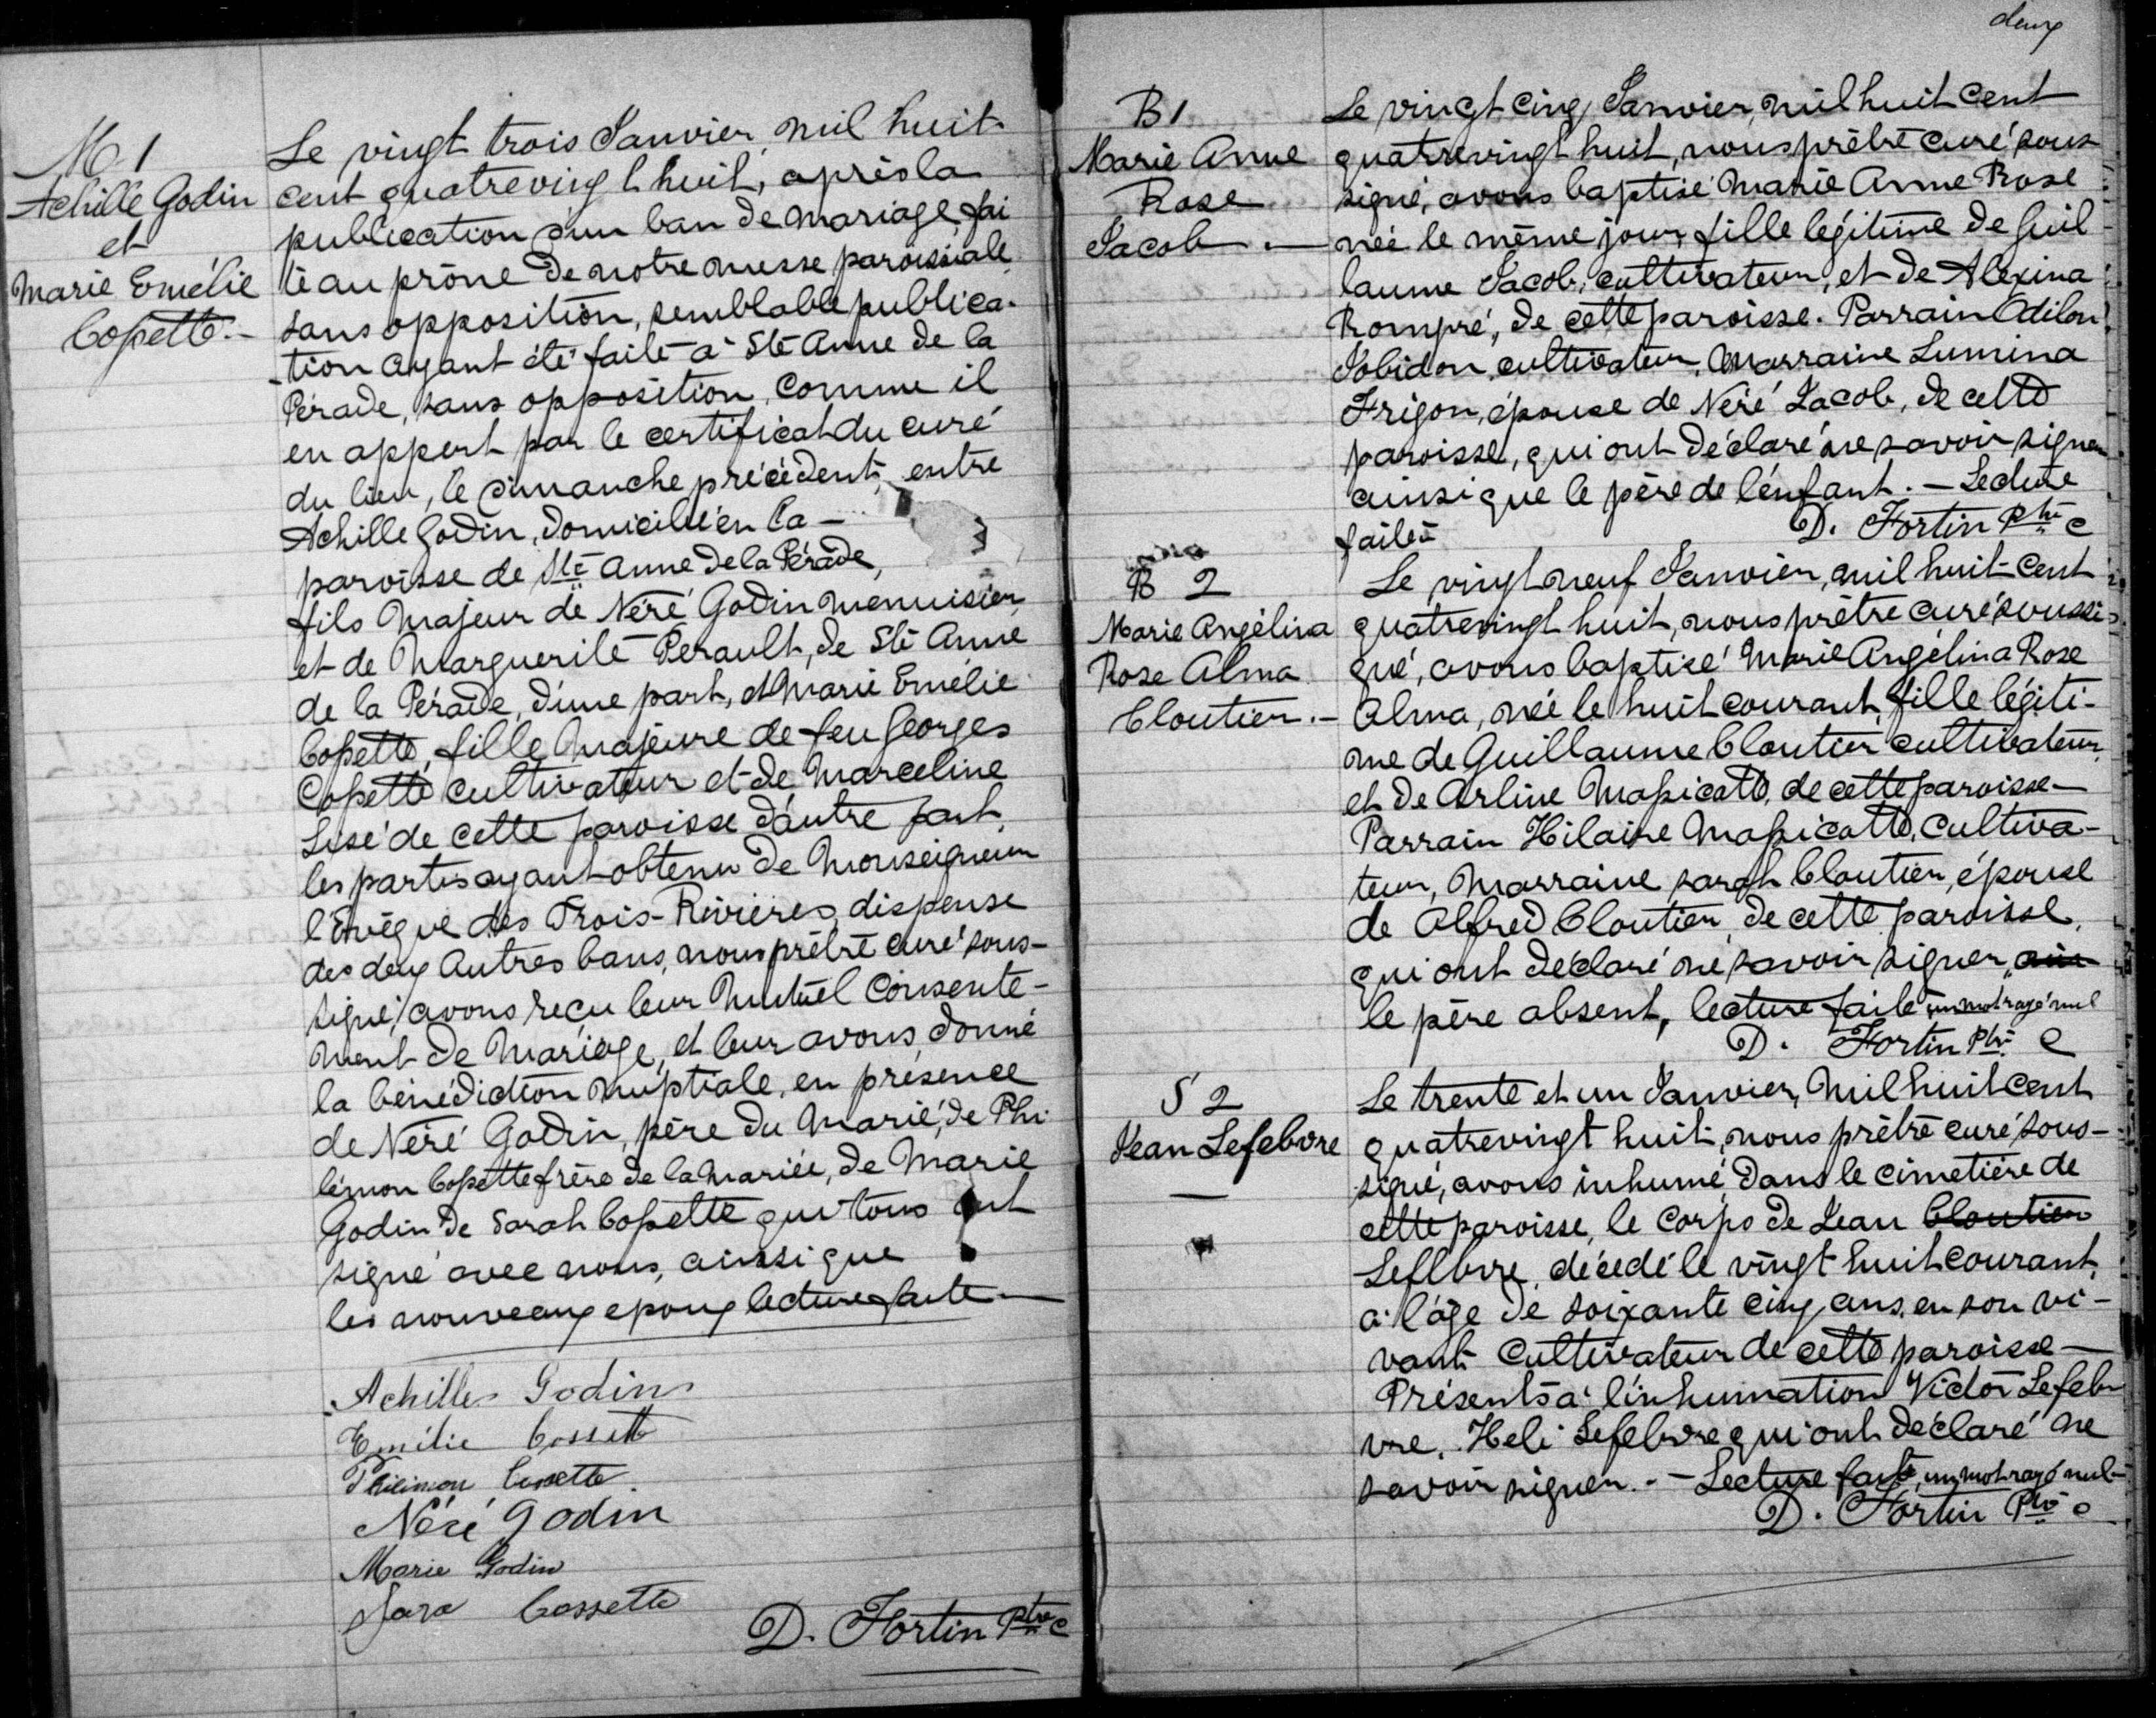 M. 1
Achille Godin
et
Marie Emélie
Cossette. -
Le vingt trois Janvier, mil huit
cent quatrevingt huit, après la
publication d'un ban de mariage, fai
te au prône de notre messe paroissiale
sans opposition, semblable publica-
-tion ayant été faite à Ste Anne de la
Pérade, sans opposition, comme il
en appert par le certificat du curé
du lieu, le dimanche précédent, entre
Achille Godin, domicilié en la -
paroisse de Ste Anne de la Pérade,
fils majeur de Néré Godin menuisier,
et de Marguerite Perault, de Ste Anne
de la Pérade, d'une part, et Marie Emélie
Cossette, fille majeure de feu Georges
Cossette cultivateur et de Marceline
Lisé de cette paroisse d'autre part,
les partis ayant obtenu de Monseigneur
l'Evêque des Trois-Rivières, dispense
des deux autres bans, nous prêtre curé sous-
signé, avons reçu leur mutuel consente-
ment de mariage, et leur avons donné
la bénédiction nuptiale, en présence
de Néré Godin, père du marié, de Phi
lémon Cossette frère de la mariée, de Marie
Godin de Sarah Cossette qui tous ont
signé avec nous, ainsi que
les nouveaux epoux lecture faite —
Achille Godin
Emélie Cossette
Philimon Cossette
Néré Godin
Marie Godin
Sara Cossette
D. Fortin Ptre c
deux
B 1
Marie Anne
Rose
Jacob. —
Le vingt cinq Janvier, mil huit cent
quatrevingt huit, nous prêtre curé sous
signé, avons baptisé Marie Anne Rose
née le même jour, fille légitime de Guil
laume Jacob, cultivateur, et de Alexina
Rompré, de cette paroisse. Parrain Odilon
Jobidon, cultivateur, Marraine Lumina
Frigon, épouse de Néré Jacob, de cette
paroisse, qui ont déclaré ne savoir signer
ainsi que le père de l'enfant. — Lecture
faite
D. Fortin Ptre c
B 2
Marie Angélina
Rose Alma
Cloutier. -
Le vingt neuf Janvier, mil huit-cent
quatrevingt huit, nous prêtre curé soussi
gné, avons baptisé Marie Angélina Rose
Alma, née le huit courant, fille légiti-
me de Guillaume Cloutier cultivateur,
et de Arline Massicotte, de cette paroisse —
Parrain Hilaire Massicotte, cultiva-
teur, Marraine Sarah Cloutier, épouse
de Alfred Cloutier, de cette paroisse,
qui ont déclaré ne savoir signer, ain
le père absent, lecture faite un mot rayé nul
D. Fortin Ptre c
S 2
Jean Lefebvre
—
Le trente et un Janvier, mil huit cent
quatrevingt huit, nous prêtre curé sous-
signé, avons inhumé dans le cimetière de
cette paroisse, le corps de Jean Cloutier
Lefebvre, décédé le vingt huit courant,
à l'âge de soixante cinq ans, en son vi-
vant cultivateur de cette paroisse —
Présents à l'inhumation Victor Lefeb
vre, Heli Lefebvre qui ont déclaré ne
savoir signer. - — Lecture faite, un mot rayé nul -
D. Fortin Ptre c